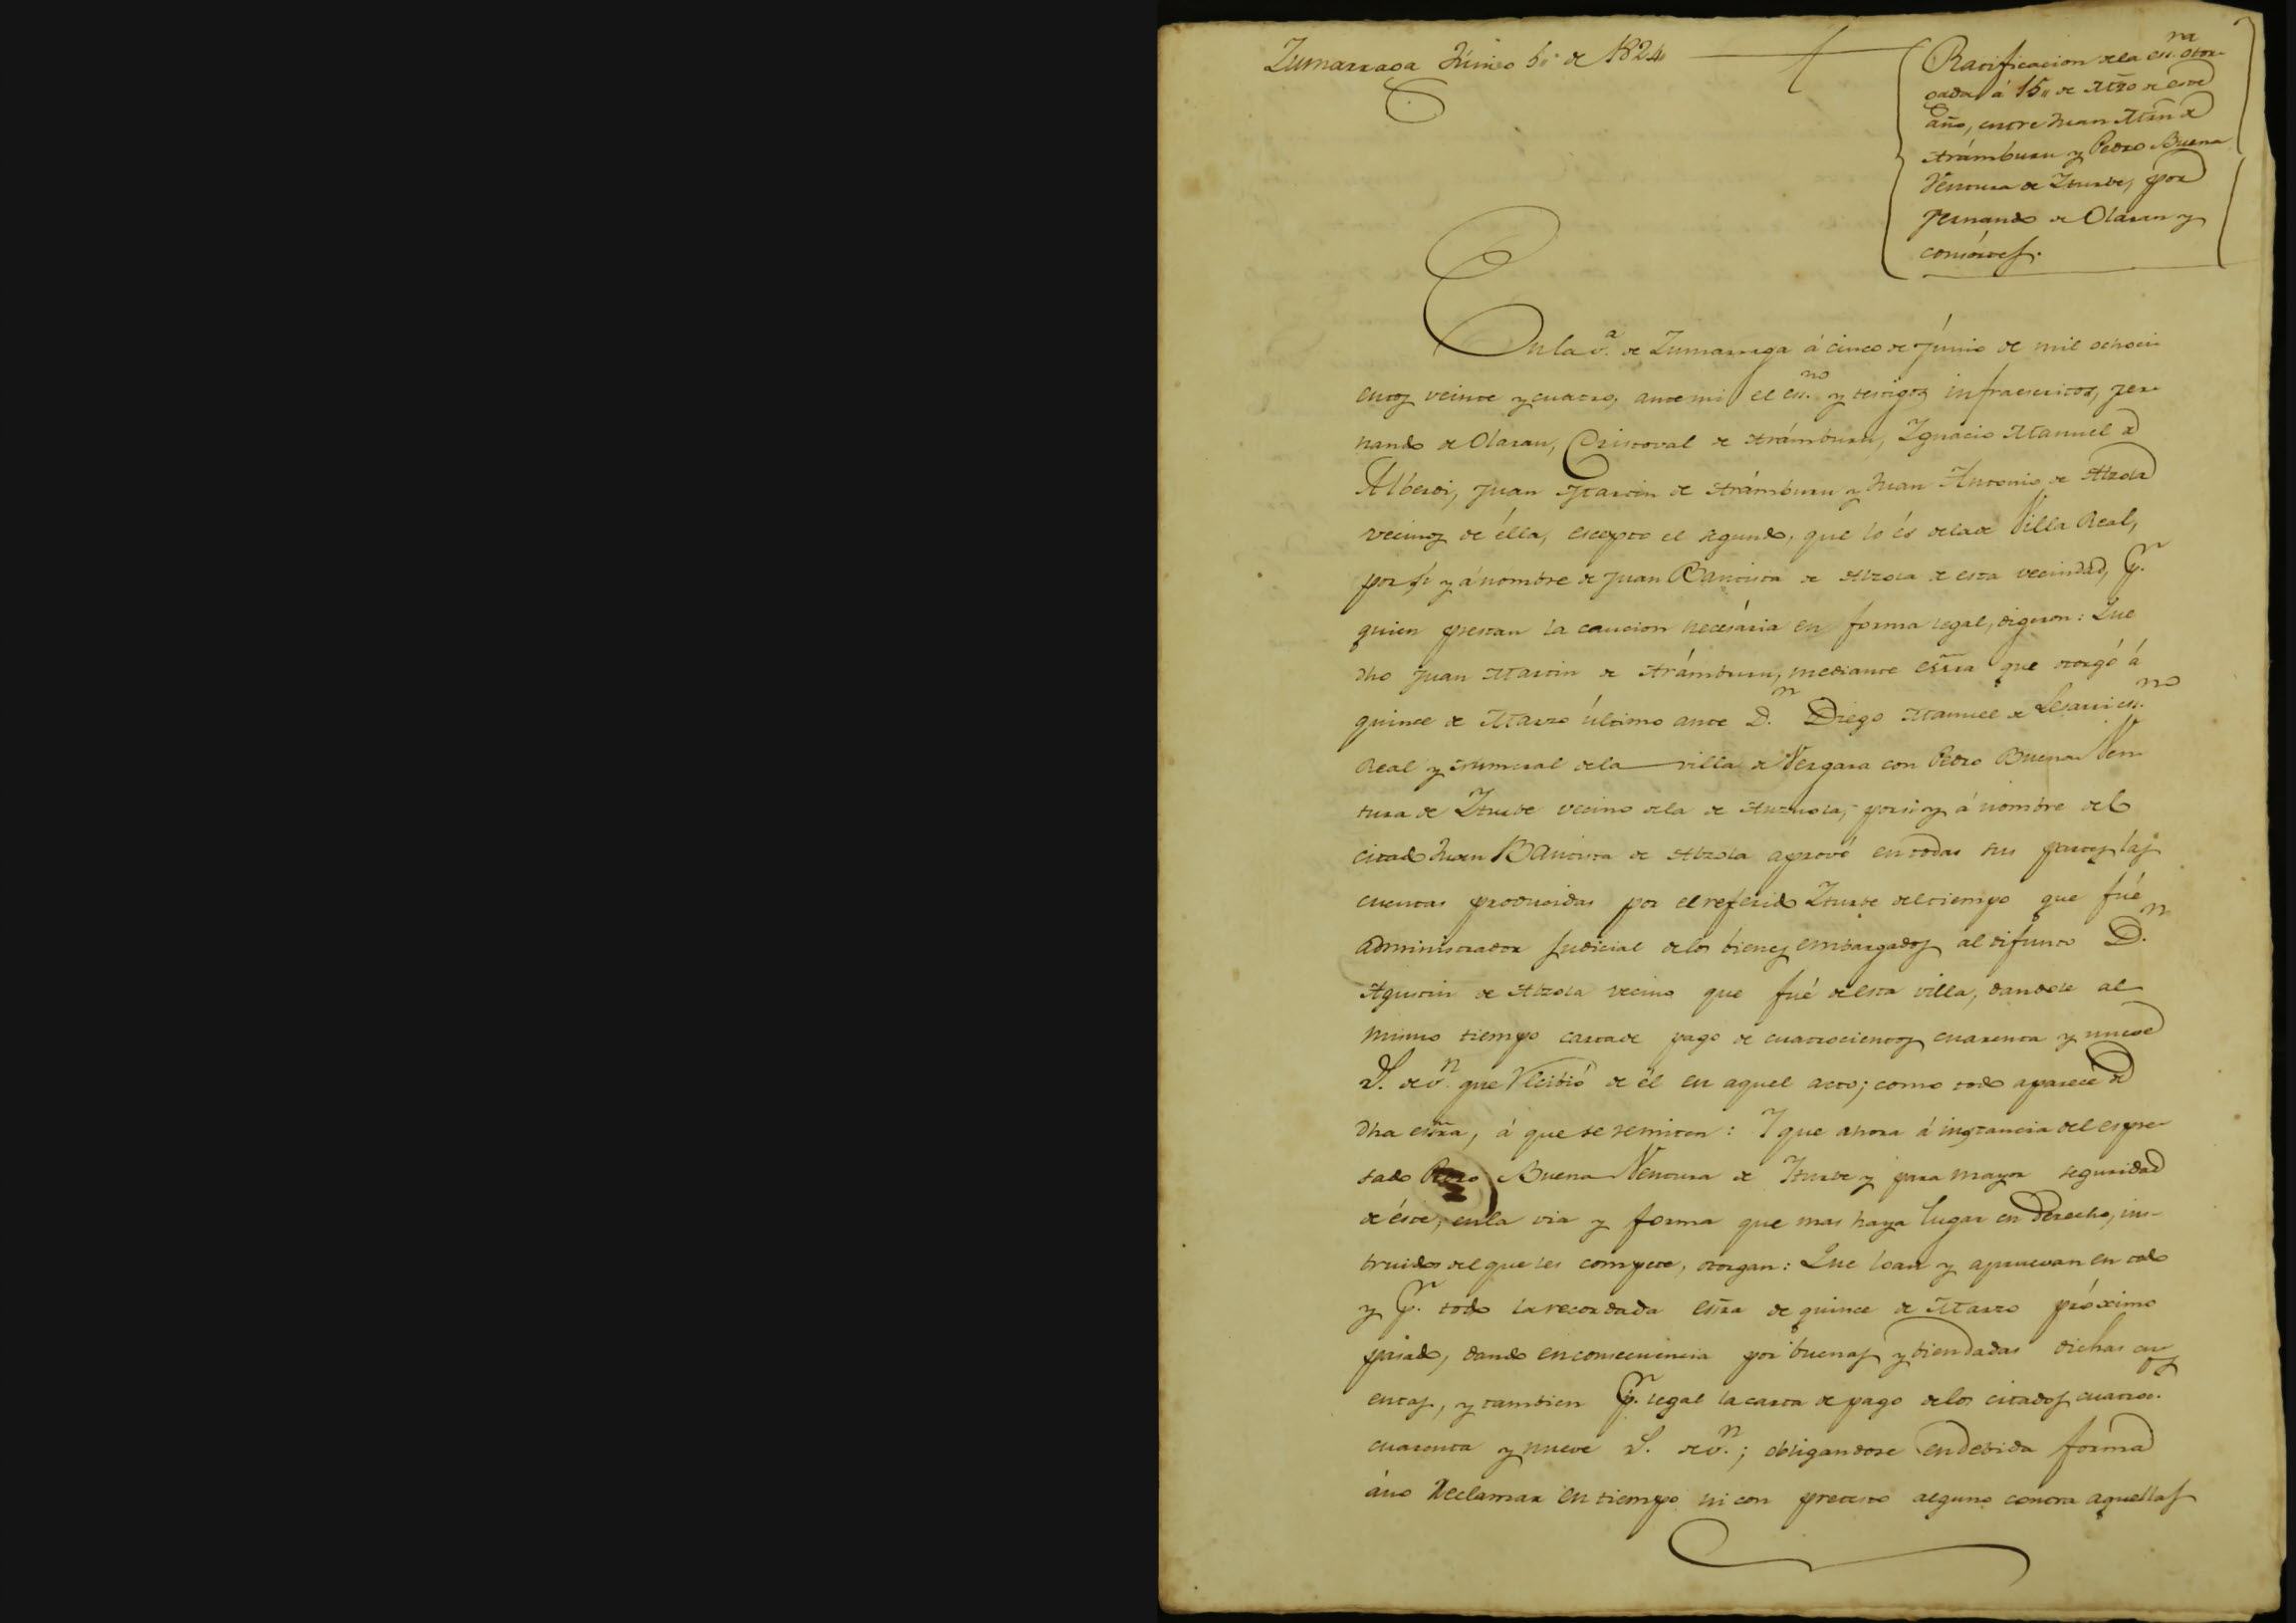 Zumarraga Júnio 5,, de 1824
Ratificacion dela es.ra otor-
gada á 15,, de Mzo de éste
año, entre Juan Mrn de
Arámburu y Pedro Buena
Ventura de Iturbe, por
Fernando de Olaran y
consórtes.
En la v.a de Zumarraga á cinco de Júnio de mil ochoci-
entos veinte y cuatro, ante mi el es.no y testigos infraescritos, Fer-
nando de Olaran, Cristoval de Arámburu, Ignacio Manuel de
Alberdi, Juan Martin de Arámburu y Juan Antonio de Alzola
vecinos de élla, escepto el segundo, que lo és dela de Villa Real,
por si y á nombre de Juan Bautista de Alzola de esta vecindad, p.r
quien prestan la caucion necesária en forma legal, digeron: Que
dho Juan Martin de Arámburu, mediante esc̃ra que otorgó á
quince de Marzo último ante D.n Diego Manuel de Lesarri es.no
Real y Numeral dela villa de Vergara con Pedro Buena Ven-
tura de Iturbe vecino dela de Anzuola, por si y á nombre del
citado Juan Bautista de Alzola aprovó en todas sus partes las
cuentas producidas por el referido Iturbe del tiempo que fué
administrador Judicial delos bienes embargados al difunto D.n
Agustin de Alzola vecino que fué de esta villa, dandole al
mismo tiempo carta de pago de cuatrocientos cuarenta y nueve
r.s de v.n que recibió de él en aquel acto; como todo aparece de
dha es̃ra, á que se remiten: Y que ahora á instancia del espre-
sado Pedro Buena Ventura de Iturbe y para mayor seguridad
de éste, en la via y forma que mas haya lugar en Derecho, ins-
truidos del que les compete, otorgan: Que loan y apruevan en todo
y p.r todo la recordada es̃ra de quince de Marzo próximo
pasado, dando en consecuencia por buenas y bien dadas dichas cu-
entas, y tambien p.r legal la carta de pago delos citados cuatroc.tos
cuarenta y nueve r.s de v.n; obligandose en debida forma
á no reclamar en tiempo ni con pretesto alguno contra aquellas